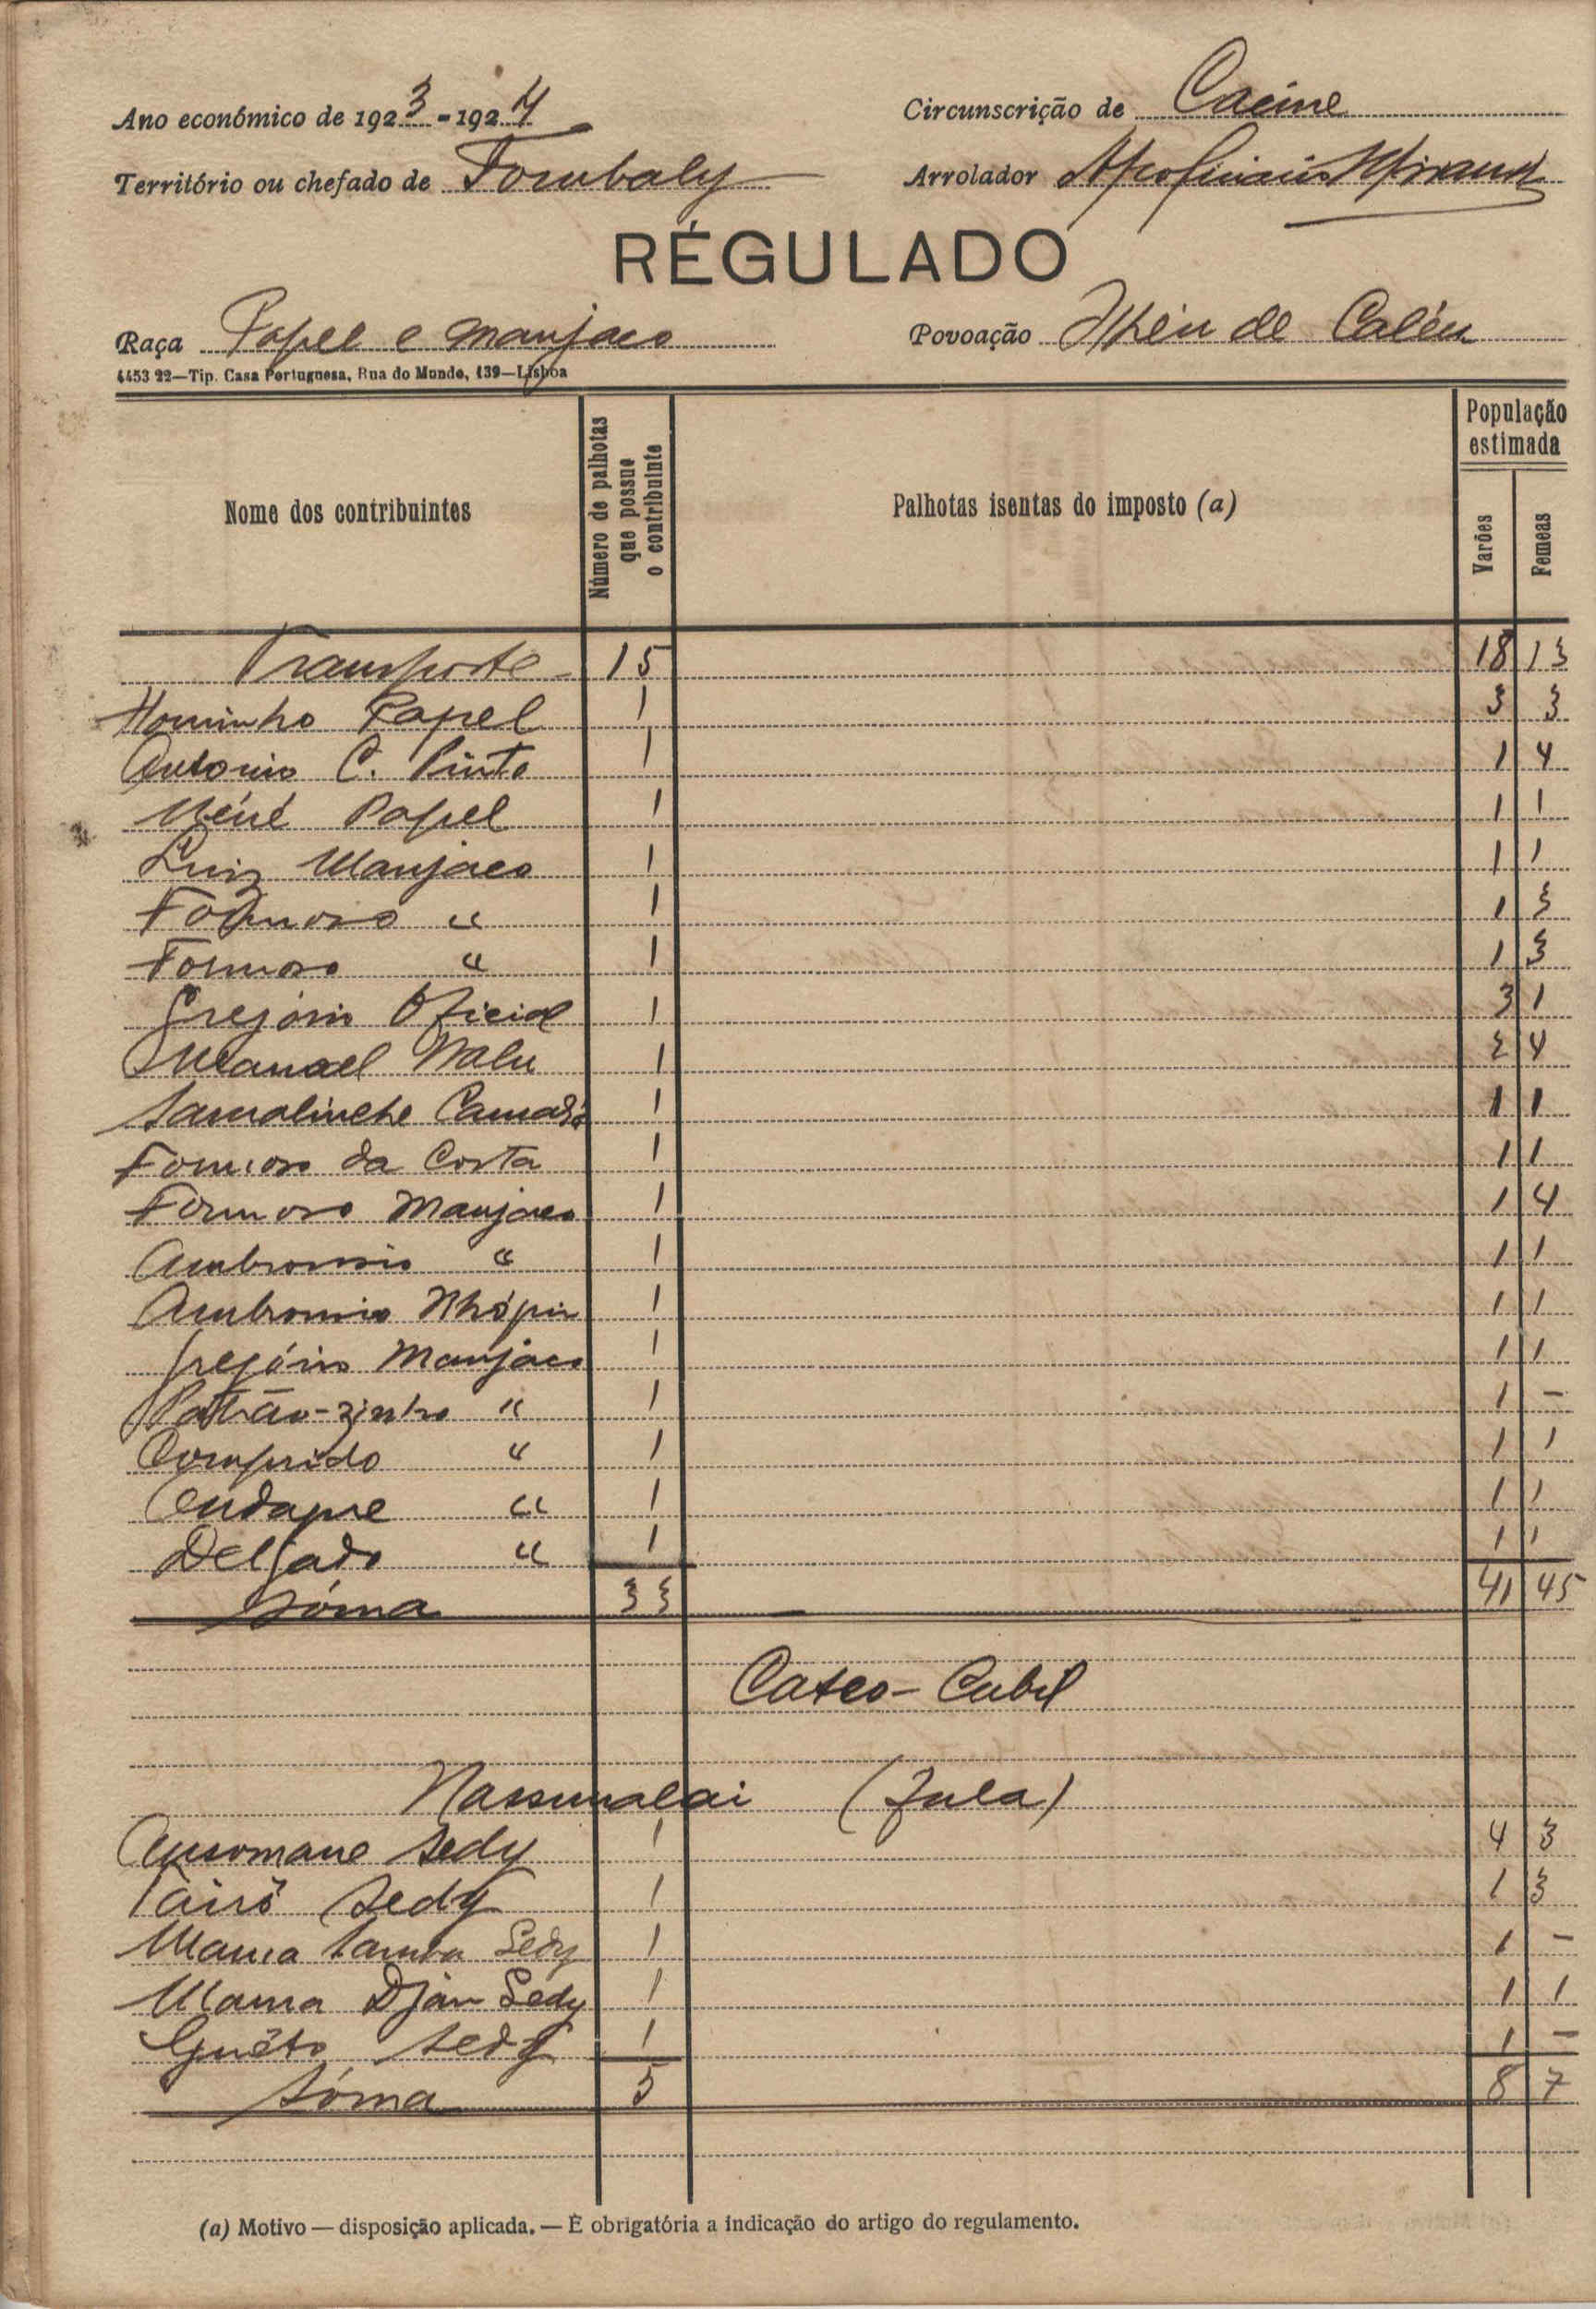 Ano económico de 1923-1924
Circunscrição de Cacine
Território ou chefado de Tombaly
Arrolador
RÉGULADO
Raça Papel e manjaco
Povoação Ilhéu de Caléu
4453 22—Tip. Casa Portuguesa, Rua do Mundo, 139—Lisboa
Nome dos contribuintes
Número de palhotas que possue o contribuinte
Palhotas isentas do imposto (a)
População estimada
Varões
Femeas
Transporte 15 18 13
Papel 1 3 3
Antonio C. Pinto 1 1 4
Papel 1 1 1
Luiz Manjaco 1 1 1
Formoso " 1 1 3
Formoso " 1 1 3
Gregório Oficial 1 3 1
Manoel Nalu 1 2 4
Camará 1 1 1
Formoso da Costa 1 1 1
Formoso Manjaco 1 1 4
Ambrosio " 1 1 1
Ambrosio 1 1 1
Gregório Manjaco 1 1 1
Patrão-zinho " 1 1 -
Comprido " 1 1 1
" 1 1 1
Delgado " 1 1 1
Sóma 33 41 45
Catco-Cabil
Nassumalai (fula)
Ansomane Sedy 1 4 3
Tairó Sedy 1 1 3
Mama Samba Sedy 1 1 -
Mama Djan Sedy 1 1 1
Guéto Sedy 1 1 -
Sóma 5 8 7
(a) Motivo — disposição aplicada. — É obrigatória a indicação do artigo do regulamento.